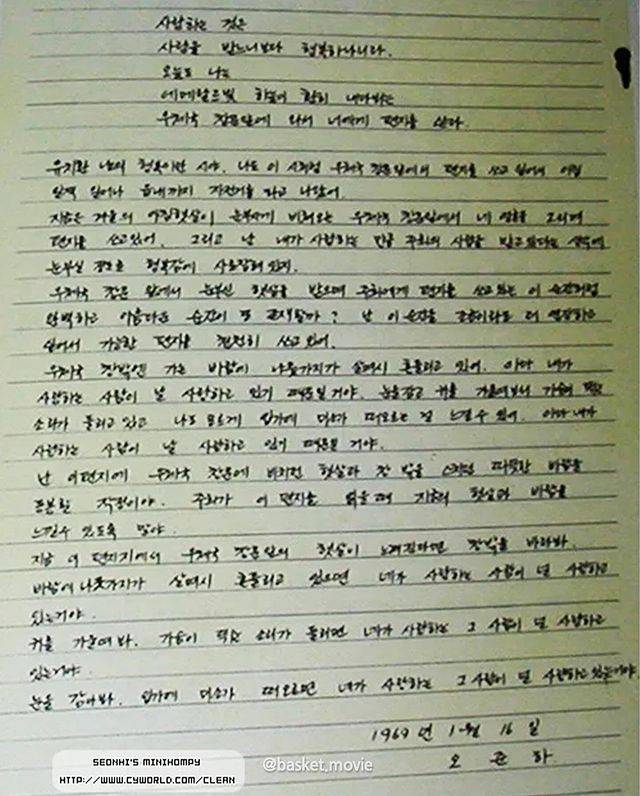 사랑하는 것은
사랑을 받느니보다 행복하나니라.
오늘도 나는
에메랄드빛 하늘이 훤히 내다뵈는
우체국 창문앞에 와서 너에게 편지를 쓴다.
유치환 님의 행복이란 시야. 나도 이 시처럼 우체국 창문앞에서 편지를 쓰고 싶어서 아침
일찍 일어나 읍내까지 자전거를 타고 나왔어.
지금은 겨울의 아침햇살이 눈부시게 비쳐오는 우체국 창문앞에서 네 얼굴을 그리며
편지를 쓰고있어. 그리고 난 내가 사랑하는 만큼 주희의 사랑을 받고있다는 생각에
눈부신 정도로 행복감에 사로잡혀 있지.
우체국 창문 앞에서 눈부신 햇살을 받으며 주희에게 편지를 쓰고 있는 이 순간처럼
완벽하고 아름다운 순간이 또 존재할까? 난 이 순간을 조금이라도 더 연장하고
싶어서 가능한 편지를 천천히 쓰고 있어.
우체국 창밖엔 가는 바람에 나뭇가지가 살며시 흔들리고 있어. 아마 내가
사랑하는 사람이 날 사랑하고 있기 때문일거야. 눈을감고 귀를 기울여보니 가슴이 뛰는
소리가 들리고 있고 나도 모르게 입가에 미소가 떠오르는 걸 느낄수 있어. 아마 내가
사랑하는 사람이 날 사랑하고 있기 때문일 거야.
난 이편지에 우체국 창문에 비치던 햇살과 창 밖을 스치던 따뜻한 바람을
동봉할 작정이야. 주희가 이 편지를 읽을 때 지금의 햇살과 바람을
느낄수 있도록 말야.
지금 이 편지지에서 우체국 창문앞의 햇살이 느껴진다면 창밖을 바라봐.
바람에 나뭇가지가 살며시 흔들리고 있으면 네가 사랑하는 사람이 널 사랑하고
있는거야.
귀를 기울여 봐. 가슴이 뛰는 소리가 들리면 네가 사랑하는 그 사람이 널 사랑하고
있는거야.
눈을 감아봐. 입가에 미소가 떠오르면 네가 사랑하는 그 사람이 널 사랑하고 있는거야.
1969년 1월 16일
오 준 하
SEONHI'S MINIHOMPY
HTTP://WWW.CYWORLD.COM/CLEAN
@basket.movie